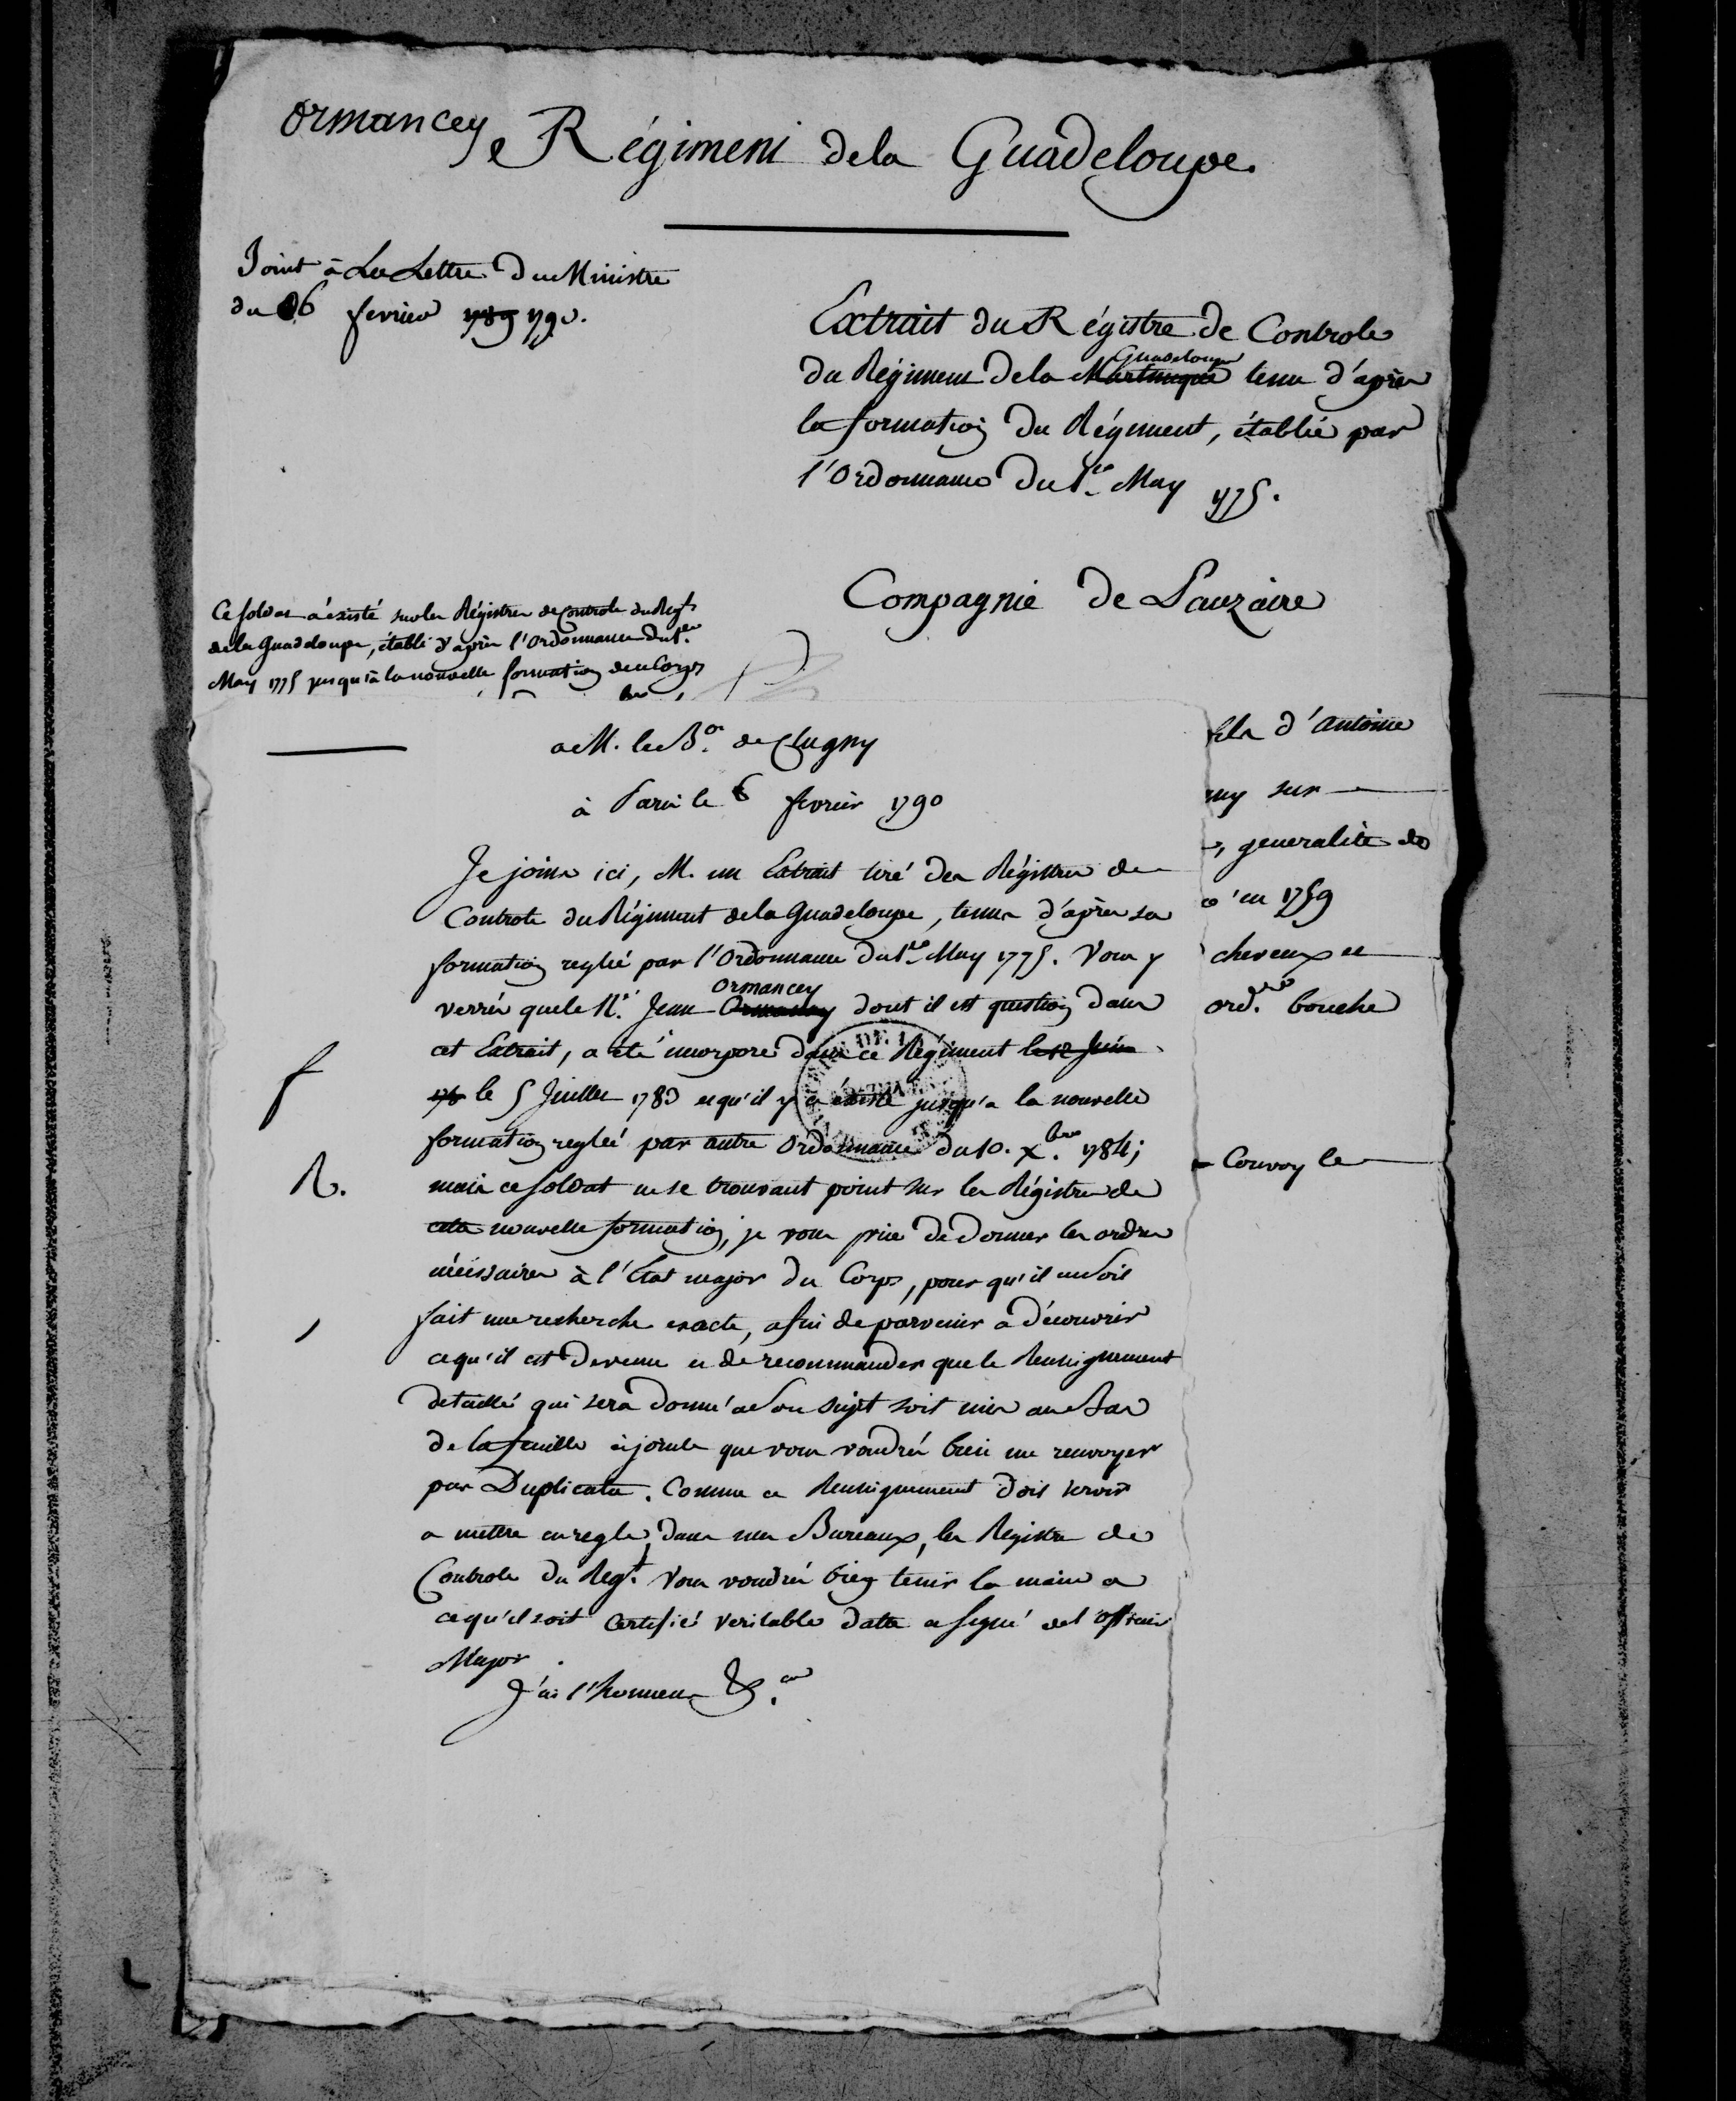 Ormancey
Régiment de la Guadeloupe.
Joint à La Lettre du Ministre
du 6 fevrier 1789 1790.
Extrait du Régistre de Controle
Guadeloupe
du Régiment de la Martinique tenu d'après
la formation du Régiment, établie par
l'Ordonnance du 1.er May 1775.
Compagnie de Lauzaire
Ce soldat a éxisté sur les Régistres de Controle du Regt
de la Guadeloupe, établi d'après l'Ordonnance du 1.er
May 1775 jusqu'à la nouvelle formation de ce Corps
a M. le B.on de Clugny
à Paris le 6 fevrier 1790
Je joins ici, M. un Extrait tiré des Régistres de
Controle du Régiment de la Guadeloupe, tenus d'après sa
formation reglée par l'Ordonnance du 1.er May 1775. Vous y
Ormancey
verrés que le N.é Jean dont il est question dans
cet Extrait, a été incorporé dans ce Régiment le 12 Juin
178 le 5 Juillet 1783 et qu'il y a éxisté jusqu'a la nouvelle
formation reglée par autre Ordonnance du 10. X.bre 1784;
mais ce soldat ne se trouvant point sur les Régistres de
cette nouvelle formation, je vous prie de donner les ordres
nécissaires à l'Etat major du Corps, pour qu'il en soit
fait une recherche exacte, afin de parvenir a découvrir
ce qu'il est devenu et de recommander que le Renseignement
detaillé qui sera donné a son sujet soit mis au bas
de la feuille cijointe que vous voudrés bien me renvoyer
par Duplicata. Comme ce Renseignement doit servir
a mettre en regle, dans mes Bureaux, les Registres de
Controle du Regt. Vous voudrés bien tenir la main a
ce qu'il soit Certifié Veritable daté et signé de l'officier
Major.
J'ai l'honneur &.a
fils d'Antoine
ny sur
, generalité de
é en 1759
cheveux et
ord.re bouche
Convoy le
f
R.